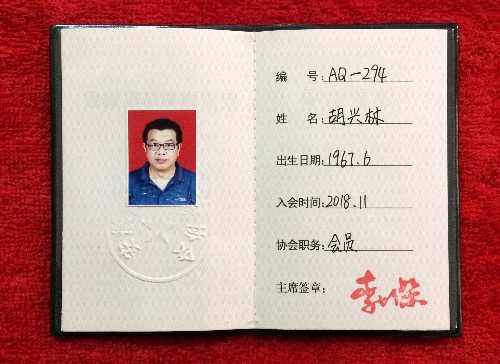 编 号:AQ-294
姓 名:胡兴林
出生日期:1967.6
入会时间:2018.11
协会职务:会员
主席签章: